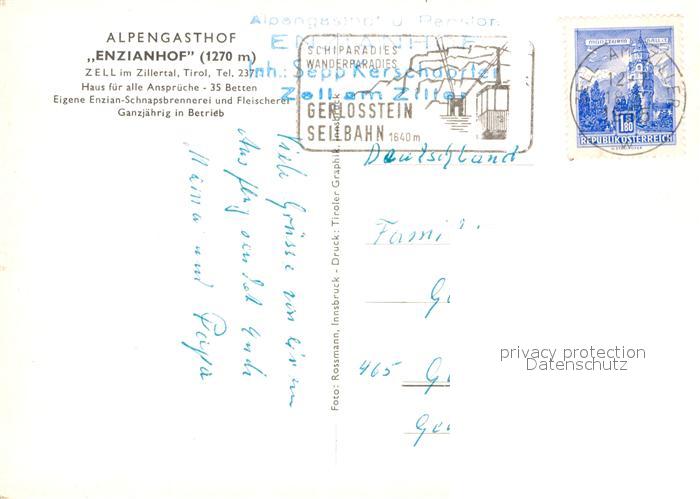 ALPENGASTHOF
„ENZIANHOF" (1270 m)
ZELL im Zillertal, Tirol, Tel. 237
Haus für alle Ansprüche - 35 Betten
Eigene Enzian-Schnapsbrennerei und Fleischerei
Ganzjährig in Betrieb
Alpengasthof u. Pension
ENZIANHOF
Inh.: Sepp Kerschdorfer
Zell am Ziller
SCHIPARADIES
WANDERPARADIES
GERLOSSTEIN
SEILBAHN 1640 m
MÜNZTURM HALL i. T.
S 1.80
REPUBLIK ÖSTERREICH
Viele Grüsse von
Ausflug sendet Euch
Mama und Papa
Foto: Rossmann, Innsbruck - Druck: Tiroler Graphik, Innsbruck
Deutschland
Fami
G
465 G
Ge
privacy protection
Datenschutz